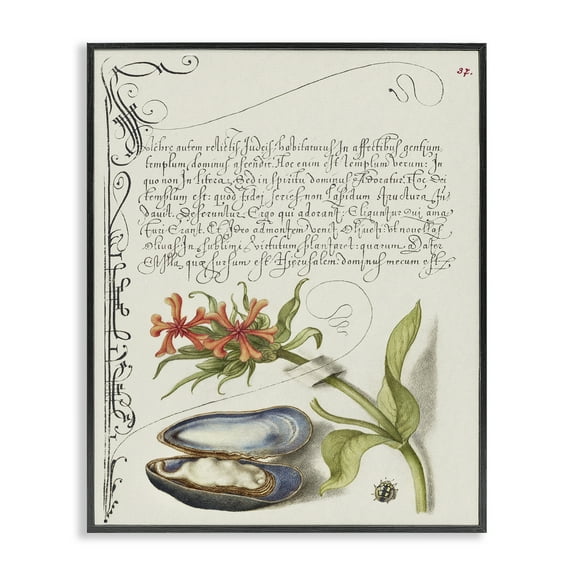 37.
autem relictis Judeis: habitaturus In affectibus gentium
templum, dominus ascendit. Hoc enim est templum verum: In
quo non In litera, Sed in spiritu dominus Adoratur. Hoc Dei
templum est: quod fidei series non Lapidum structura
Deseruntur Ergo qui adorant, Eliguntur Qui ama
turi Erant. Et Ideo ad montem venit Oliueti: vt nouellas
Oliuas In sublimi Virtutum plantaret: quarum Mater
est Illa, quæ sursum est Hierusalem: dominus mecum est